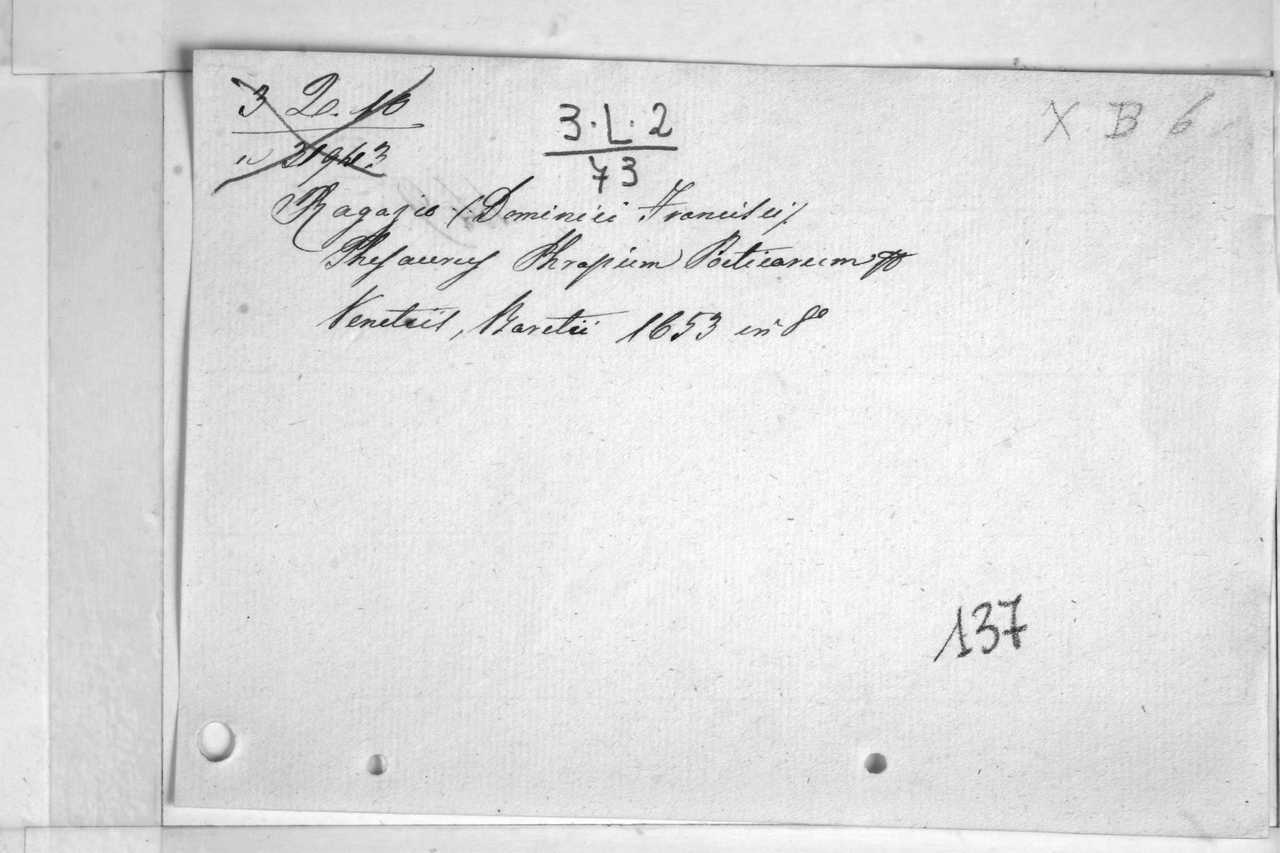 3 2. 16
3.L.2
X B 6
73
Ragazio (Dominici Francisci)
Thesaurus Phrasium Poeticarum
Venetiis, Baretii 1653 in 8°
137